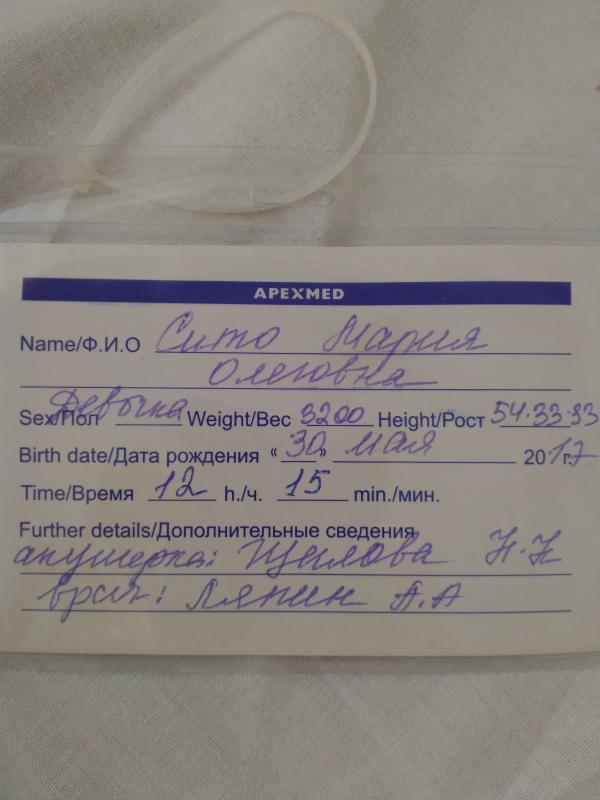 APEXMED
Name/Ф.И.О Сито Мария
Олеговна
Sex/Пол Девочка Weight/Вес 3200 Height/Рост 54-33-33
Birth date/Дата рождения “ 30 ” мая 2017г.
Time/Время 12 h./ч. 15 min./мин.
Further details/Дополнительные сведения
акушерка: Щилова Н.Н
врач: Ляпин А.А